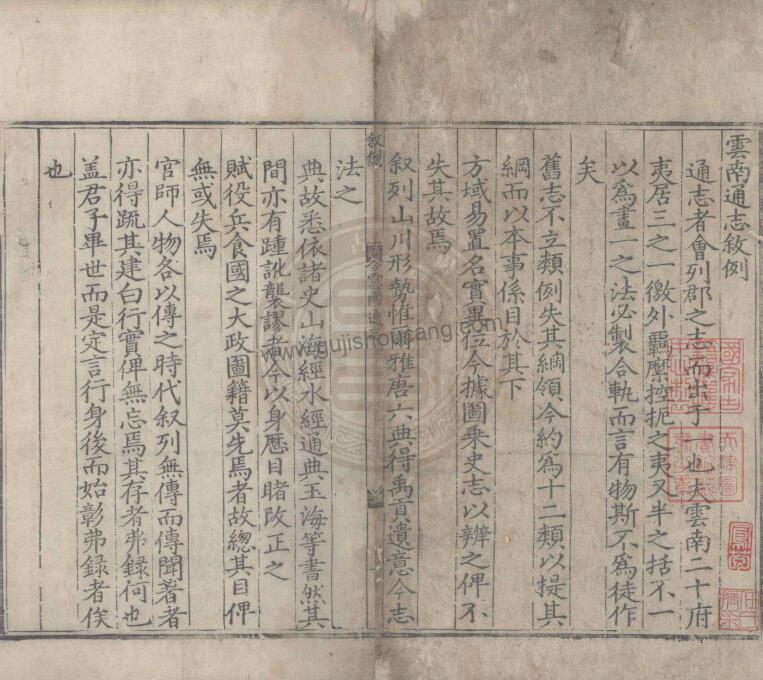 雲南通志敘例
通志者會列郡之志而出于一也夫雲南二十府
夷居三之一徼外羈縻控扼之夷又半之括不一
以爲畫一之法必製合軌而言有物斯不爲徒作
矣
舊志不立類例失其綱領今約爲十二類以提其
綱而以本事係目於其下
方域易置名實異位今據圖乘史志以辨之俾不
失其故焉
敘列山川形勢惟爾雅唐六典得禹貢遺意今志
敘例
雲南通志
法之
典故悉依諸史山海經水經通典玉海等書然其
間亦有踵訛襲謬者今以身歷目睹改正之
賦役兵食國之大政圖籍莫先焉者故總其目俾
無或失焉
官師人物各以傳之時代叙列無傳而傳聞著者
亦得疏其建白行實俾無忘焉其存者弗録何也
盖君子畢世而是定言行身後而始彰弗録者俟
也
www.gujishoucang.com